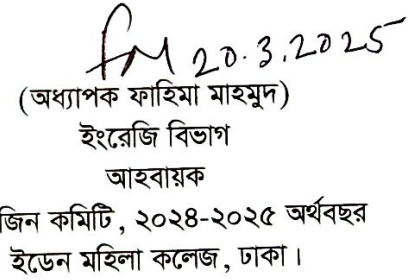 20.3.2025
(অধ্যাপক ফাহিমা মাহমুদ)
ইংরেজি বিভাগ
আহবায়ক
জিন কমিটি, ২০২৪-২০২৫ অর্থবছর
ইডেন মহিলা কলেজ, ঢাকা।